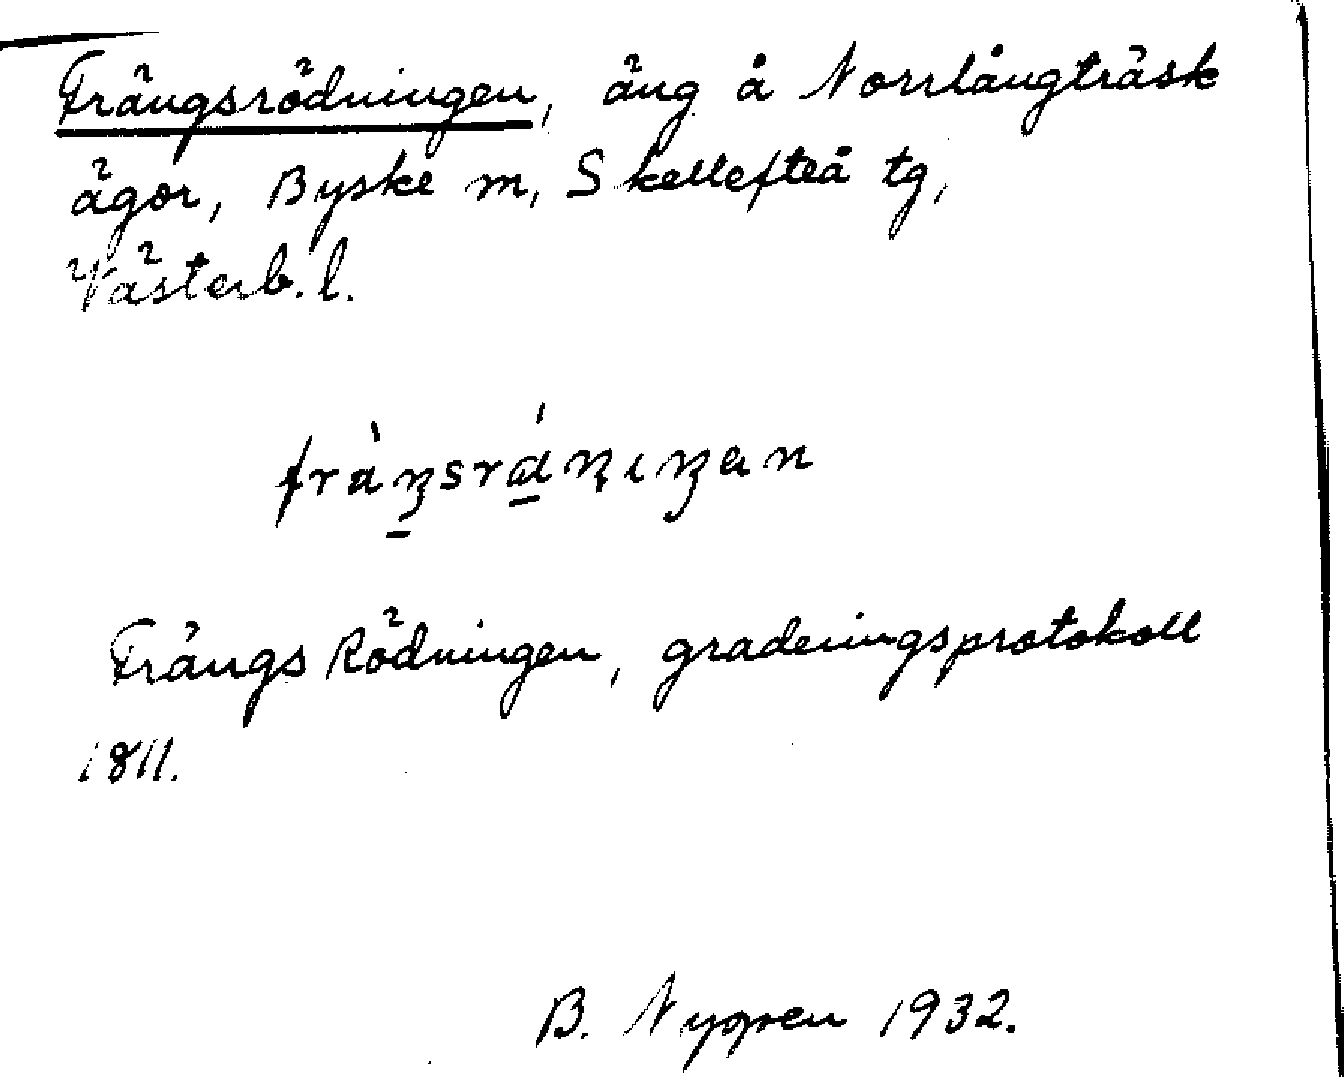 Frängsrödningen, äng å Norrlångträsk
ägor, Byske sn, Skellefteå tg,
Västerb. l.
Frängs Rödningen, graderingsprotokoll
1811.
B. Nygren 1932.